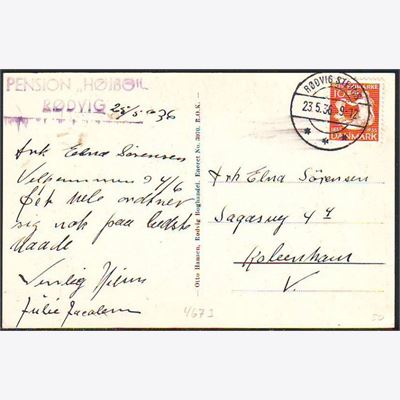 PENSION „HØJBO"
RØDVIG 25/5 1936
Frk Elna Sørensen
Velkommen d 4/6
Det hele ordner
sig nok paa bedste
Maade
Venlig Hilsen
Julie Jacobsen
Otto Hansen, Rødvig Boghandel. Eneret No. 3070. R.O.K.
RØDVIG STEVNS
23.5.36. 9-12
10
DANMARK
Frk Elna Sørensen
Sagasvej 4
København
V.
4673
50